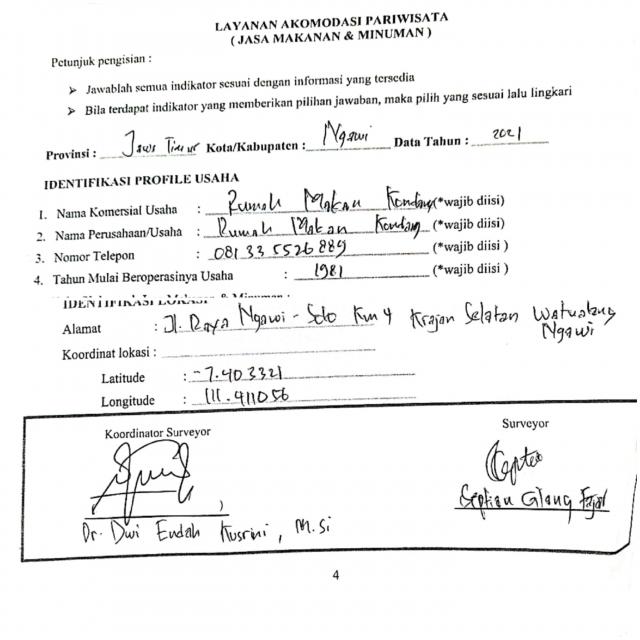 LAYANAN AKOMODASI PARIWISATA
( JASA MAKANAN & MINUMAN )
Petunjuk pengisian :
➤ Jawablah semua indikator sesuai dengan informasi yang tersedia
➤ Bila terdapat indikator yang memberikan pilihan jawaban, maka pilih yang sesuai lalu lingkari
Provinsi : Jawa Timur Kota/Kabupaten : Ngawi Data Tahun : 2021
IDENTIFIKASI PROFILE USAHA
1. Nama Komersial Usaha : Rumah Makan Kondang (*wajib diisi)
2. Nama Perusahaan/Usaha : Rumah Makan Kondang (*wajib diisi)
3. Nomor Telepon : 081335526889 (*wajib diisi )
4. Tahun Mulai Beroperasinya Usaha : 1981 (*wajib diisi )
IDENTIFIKASI LOKASI & Minuman :
Alamat : Jl. Raya Ngawi - Solo Km 4 Krajan Selatan Watualang
Ngawi
Koordinat lokasi :
Latitude : -7.403321
Longitude : 111.411056
Koordinator Surveyor Surveyor
Septian Gilang Fajal
Dr. Dwi Endah Kusrini, M.Si
4